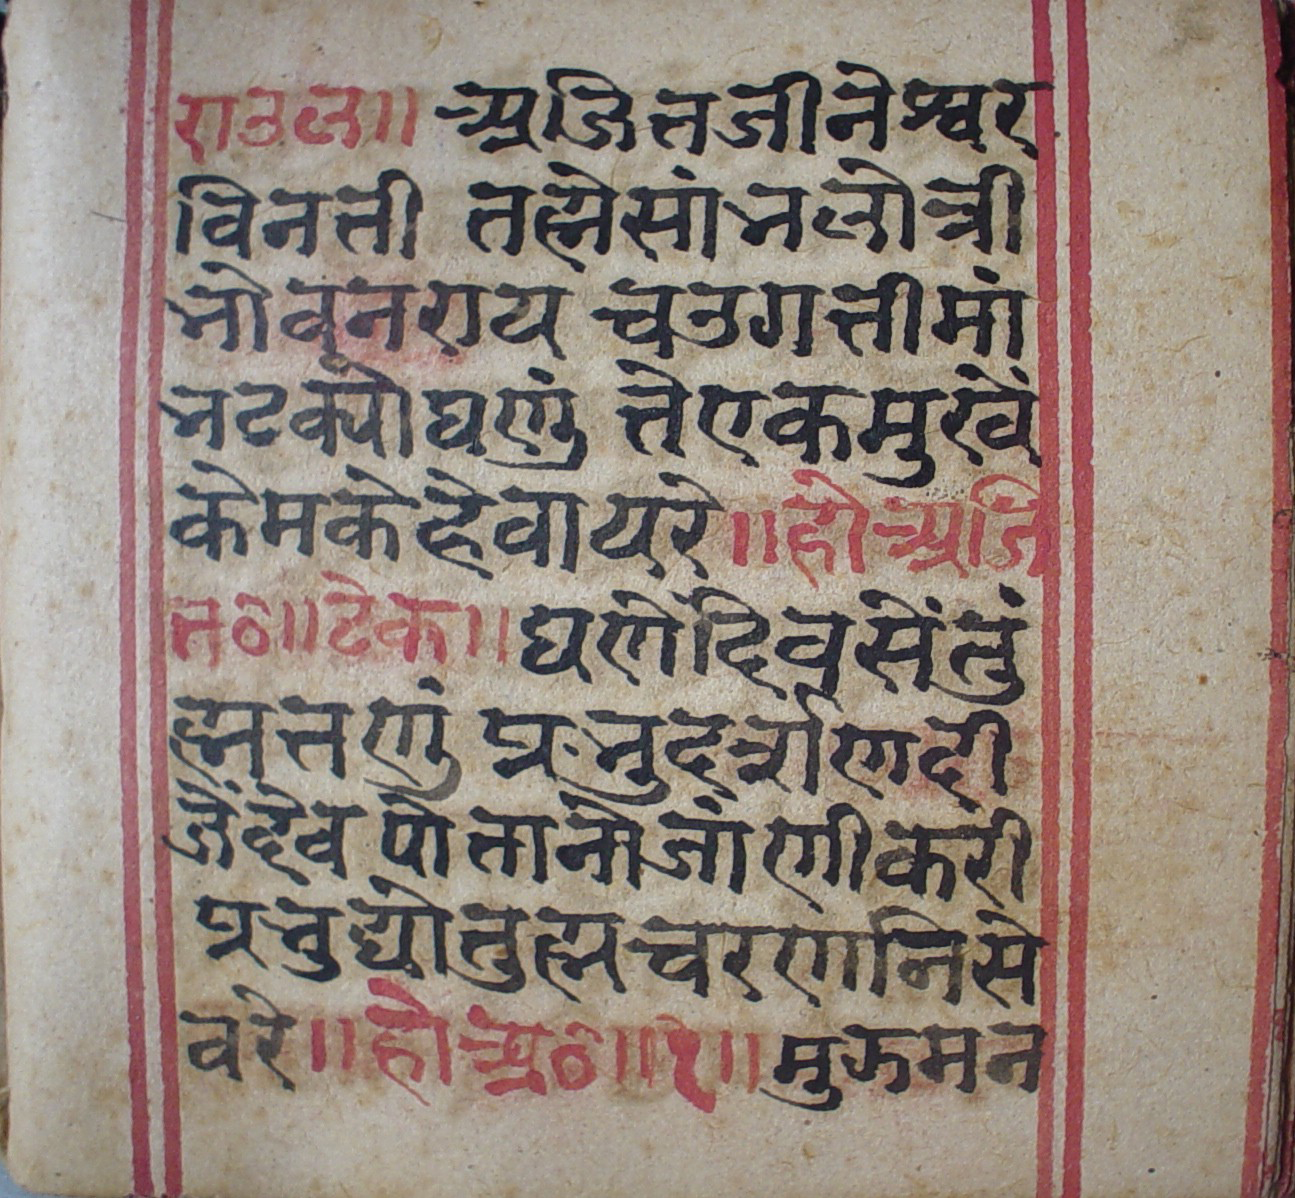 राउल॥ अजितजीनेश्वर
विनती तह्मेसांभलोत्री
भोवनराय चउगतीमां
भटक्योघणुं तेएकमुखें
केमकेहेवायरे॥होअजि
त०॥टेक॥घणेदिवसेंतुं
ह्मतणुं प्रभुदर्शणदी
जेंदेव पोतानोजांणीकरी
प्रभुद्योतुह्मचरणनिसे
वरे॥होअ०॥१॥मुझमन